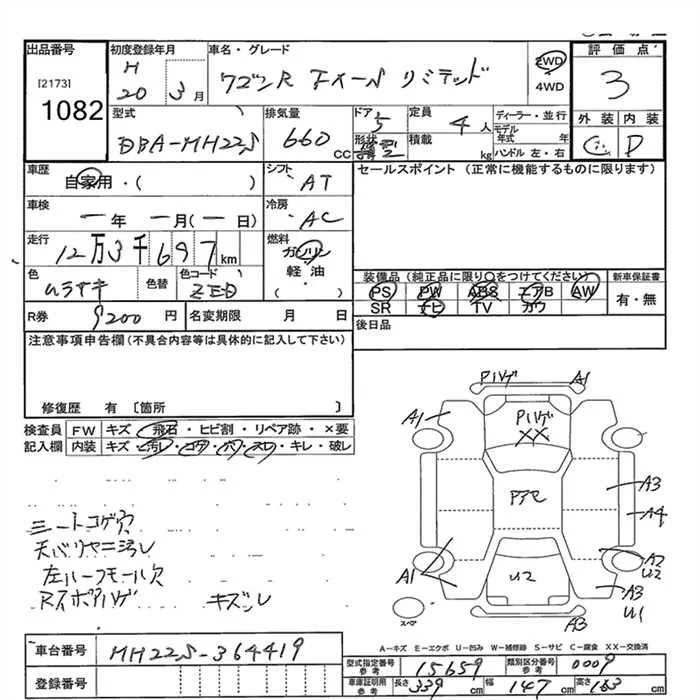 出品番号 初度登録年月 車名・グレード 評価点
[2173] H 20 3月 ワゴンR FX-S リミテッド 2WD 4WD 3
1082
型式 排気量 ドア 定員 ディーラー・並行 外装 内装
DBA-MH22S 660 CC 5 4人 モデル年式 年 C D
形状 積載 kg ハンドル 左・右
車歴 シフト セールスポイント(正常に機能するものに限ります)
自家用・( ) AT
車検 冷房
一年 一月(一日) AC
走行 燃料
12万3千697km ガソリン
軽・油
( )
装備品(純正品に限り○をつけてください) 新車保証書
色 色替 色コード
ムラサキ ZED
PS PW ABS エアB AW 有・無
SR ナビ TV カワ
R券 9200円 名変期限 月 日 後日品
注意事項申告欄(不具合内容等は具体的に記入して下さい)
修復歴 有〔箇所 〕
検査員 FW キズ・飛石・ヒビ割・リペア跡・×要
記入欄 内装 キズ・汚レ・コゲ・穴・スレ・キレ・破レ
シートコゲ穴
天バリヤニ汚レ
左ルーフモール欠
Rスポハゲ キズスレ
Pハゲ A1
A1 Pハゲ
XX
A3
A4
A1 U2 A2
U2
A3
U1
A3
スペア
A-キズ E-エクボ U-凹み W-補修跡 S-サビ C-腐食 XX-交換済
車台番号 MH22S-364419
登録番号
型式指定番号 参考 15659 類別区分番号 参考 0009
車庫証明用 参考 長さ 339 cm 幅 147 cm 高さ 163 cm